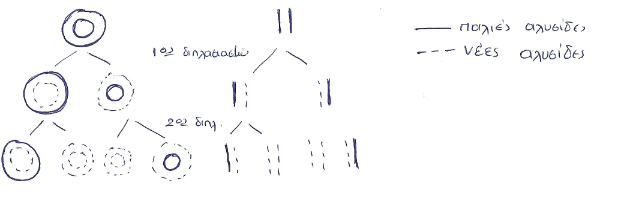 1ος διπλασιασμός
2ος διπλ.
—— παλιές αλυσίδες
--- νέες αλυσίδες